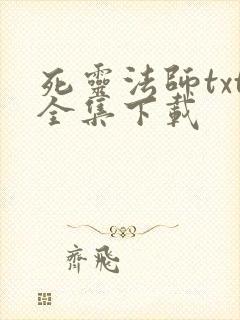 死靈法師txt
全集下載
齊飛